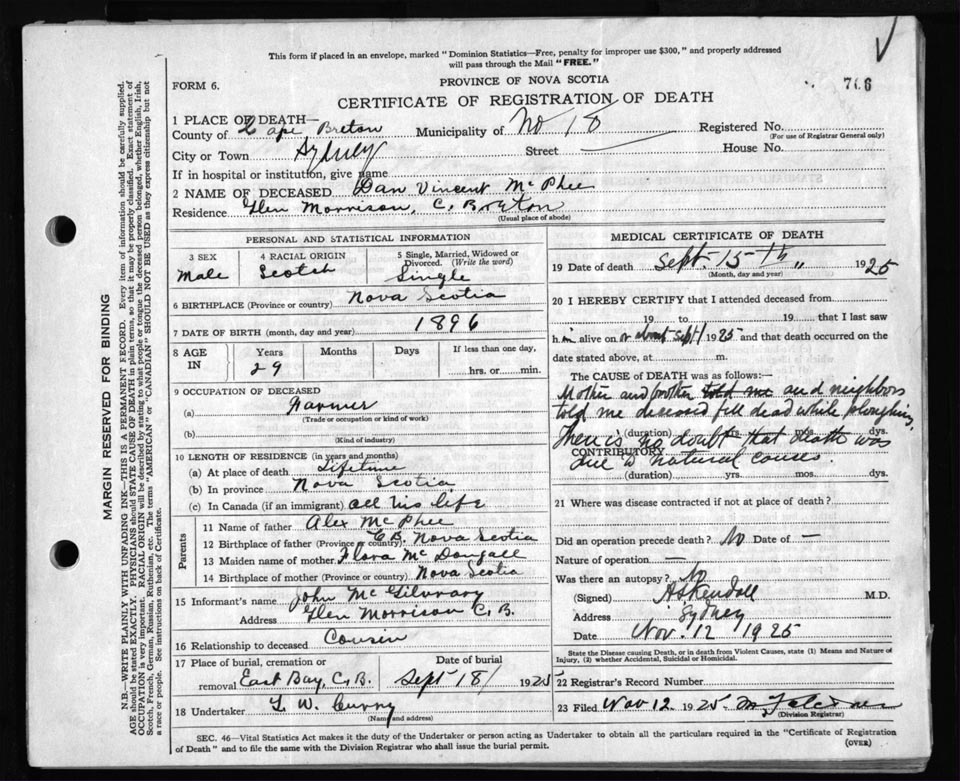 This form if placed in an envelope, marked "Dominion Statistics—Free, penalty for improper use $300," and properly addressed
will pass through the Mail "FREE."
FORM 6.
PROVINCE OF NOVA SCOTIA
706
CERTIFICATE OF REGISTRATION OF DEATH
1 PLACE OF DEATH—
County of Cape Breton Municipality of No 18 Registered No.
(For use of Registrar General only)
City or Town Sydney Street House No.
If in hospital or institution, give name
2 NAME OF DECEASED Dan Vincent McPhee
Residence Glen Morrison, C. Breton
(Usual place of abode)
PERSONAL AND STATISTICAL INFORMATION
3 SEX Male
4 RACIAL ORIGIN Scotch
5 Single, Married, Widowed or
Divorced. (Write the word)
Single
6 BIRTHPLACE (Province or country) Nova Scotia
7 DATE OF BIRTH (month, day and year) 1896
8 AGE IN
Years Months Days If less than one day,
29 hrs. or min.
9 OCCUPATION OF DECEASED
(a) Farmer
(Trade or occupation or kind of work)
(b)
(Kind of industry)
10 LENGTH OF RESIDENCE (in years and months)
(a) At place of death Lifetime
(b) In province Nova Scotia
(c) In Canada (if an immigrant) all his life
Parents
11 Name of father Alex McPhee
12 Birthplace of father (Province or country) C.B. Nova Scotia
13 Maiden name of mother Flora McDougall
14 Birthplace of mother (Province or country) Nova Scotia
15 Informant's name John McGilvrary
Address Glen Morrison C.B.
16 Relationship to deceased Cousin
17 Place of burial, cremation or Date of burial
removal East Bay, C.B. Sept 18/ 1925
18 Undertaker F. W. Curry
(Name and address)
MEDICAL CERTIFICATE OF DEATH
19 Date of death Sept. 15th 1925
(Month, day and year)
20 I HEREBY CERTIFY that I attended deceased from
19 to 19 that I last saw
him alive on or about Sept 1 1925 and that death occurred on the
date stated above, at m.
The CAUSE OF DEATH was as follows:—
Mother and brother told me and neighbors
told me deseased fell dead while ploughing,
(duration) yrs. mos. dys.
There is no doubt that death was
CONTRIBUTORY
due to natural causes.
(duration) yrs. mos. dys.
21 Where was disease contracted if not at place of death?
Did an operation precede death? No Date of —
Nature of operation —
Was there an autopsy? No
(Signed) A S Kendall M.D.
Address Sydney
Date Nov. 12 1925
State the Disease causing Death, or in death from Violent Causes, state (1) Means and Nature of
Injury, (2) whether Accidental, Suicidal or Homicidal.
22 Registrar's Record Number
23 Filed Nov 12 1925
(Division Registrar)
SEC. 46—Vital Statistics Act makes it the duty of the Undertaker or person acting as Undertaker to obtain all the particulars required in the "Certificate of Registration
of Death" and to file the same with the Division Registrar who shall issue the burial permit.
(OVER)
MARGIN RESERVED FOR BINDING
N.B—WRITE PLAINLY WITH UNFADING INK—THIS IS A PERMANENT RECORD. Every item of information should be carefully supplied.
AGE should be stated EXACTLY. PHYSICIANS should STATE CAUSE OF DEATH in plain terms, so that it may be properly classified. Exact statement of
OCCUPATION is very important. RACIAL ORIGIN will be described by stating to what people or tongue the deceased person belonged, whether English, Irish,
Scotch, French, German, Russian, Ruthenian, etc. The terms "AMERICAN" or "CANADIAN" SHOULD NOT BE USED as they express citizenship but not
a race or people. See instructions on back of Certificate.